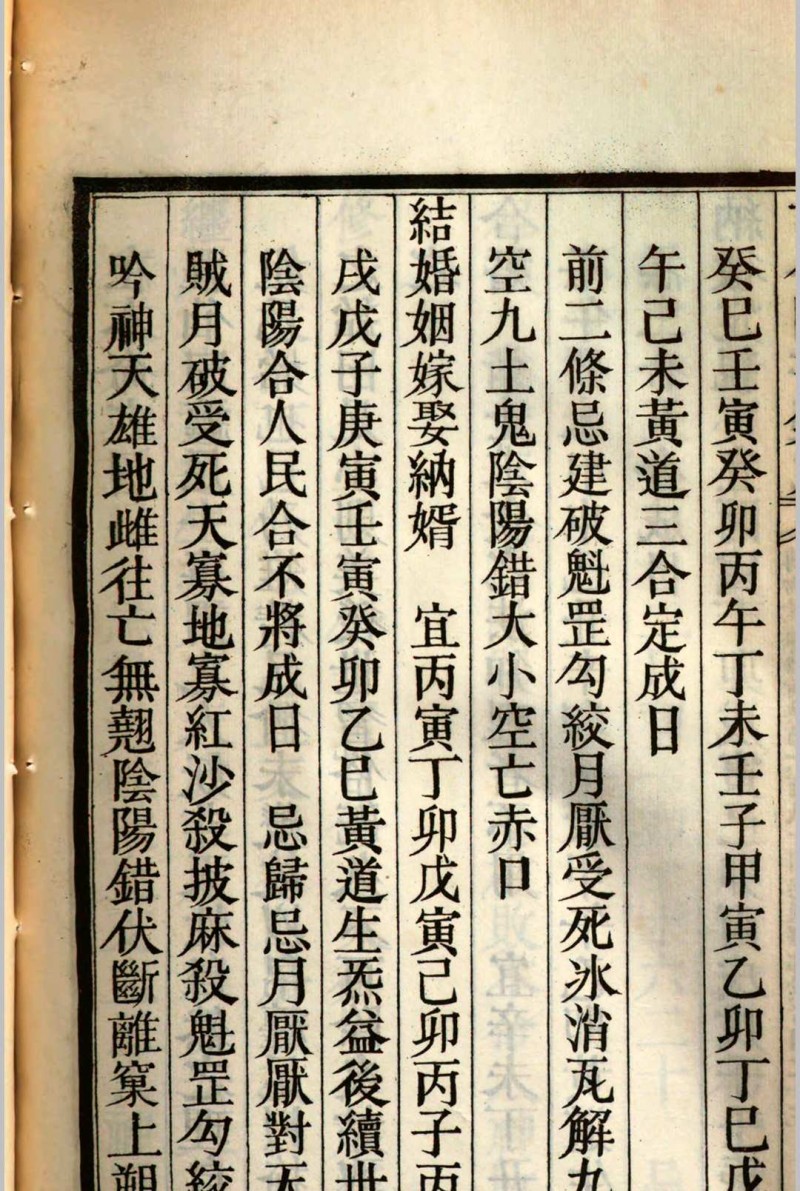 癸巳壬寅癸卯丙午丁未壬子甲寅乙卯丁巳戊
午己未黃道三合定成日
前二條忌建破魁罡勾絞月厭受死冰消瓦解九
空九土鬼陰陽錯大小空亡赤口
結婚姻嫁娶納婿　宜丙寅丁卯戊寅己卯丙子丙
戌戊子庚寅壬寅癸卯乙巳黃道生炁益後續世
陰陽合人民合不將成日　忌歸忌月厭厭對天
賊月破受死天寡地寡紅沙殺披麻殺魁罡勾絞
吟神天雄地雌往亡無翹陰陽錯伏斷離窠上朔